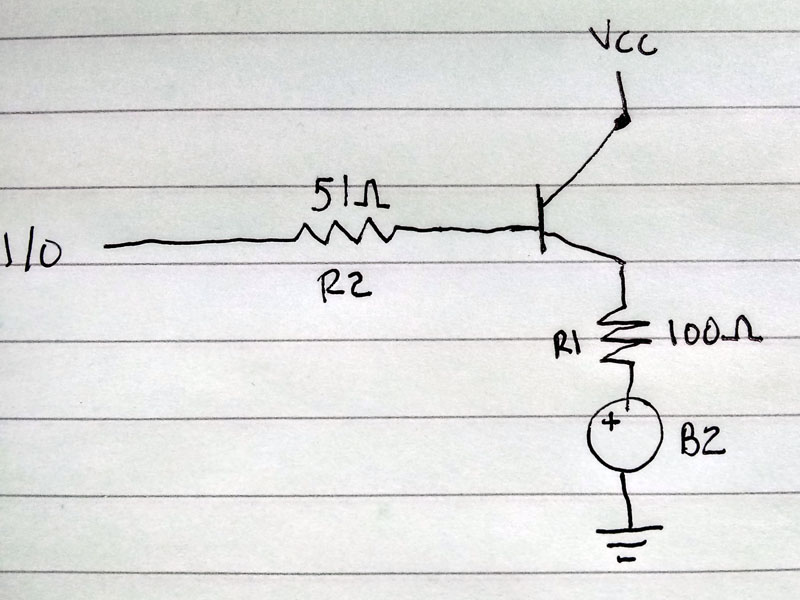 VCC
51Ω
I/O
R2
R1 100Ω
+ B2